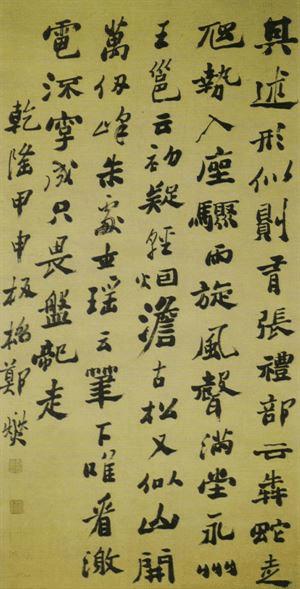 其述形似則有張禮部云奔蛇走
虺勢入座驟雨旋風聲滿堂永州
王邕云初疑輕烟澹古松又似山開
萬仞峰朱處士瑤云筆下唯看激
電流字成只畏盤龍走
乾隆甲申板橋鄭燮